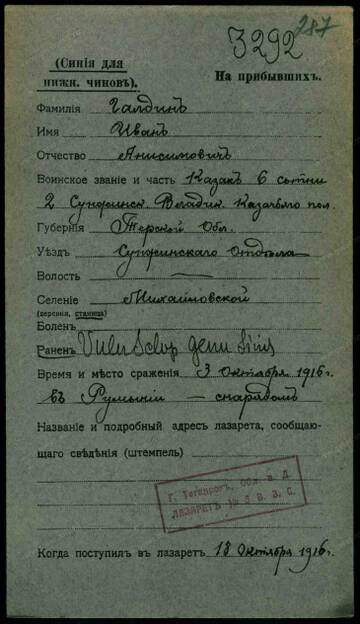 3292
287
(Синія для
нижн. чиновъ).
На прибывшихъ.
Фамилія Галдинъ
Имя Иванъ
Отчество Анисимовичъ
Воинское званіе и часть Казакъ 6 сотни
2 Сунженск. Владик. Казачьяго пол.
Губернія Терской Обл.
Уѣздъ Сунженскаго Отдѣла
Волость —
Селеніе Михайловской
(деревня, станица)
Боленъ
Раненъ Vuln Sclop genu sinis
Время и мѣсто сраженія 3 Октября 1916 г.
въ Румыніи — снарядомъ
Названіе и подробный адресъ лазарета, сообщаю-
щаго свѣдѣнія (штемпель)
Г. Таганрогъ, Обл. В. Д.
ЛАЗАРЕТЪ В. З. С.
Когда поступилъ въ лазаретъ 13 Октября 1916 г.